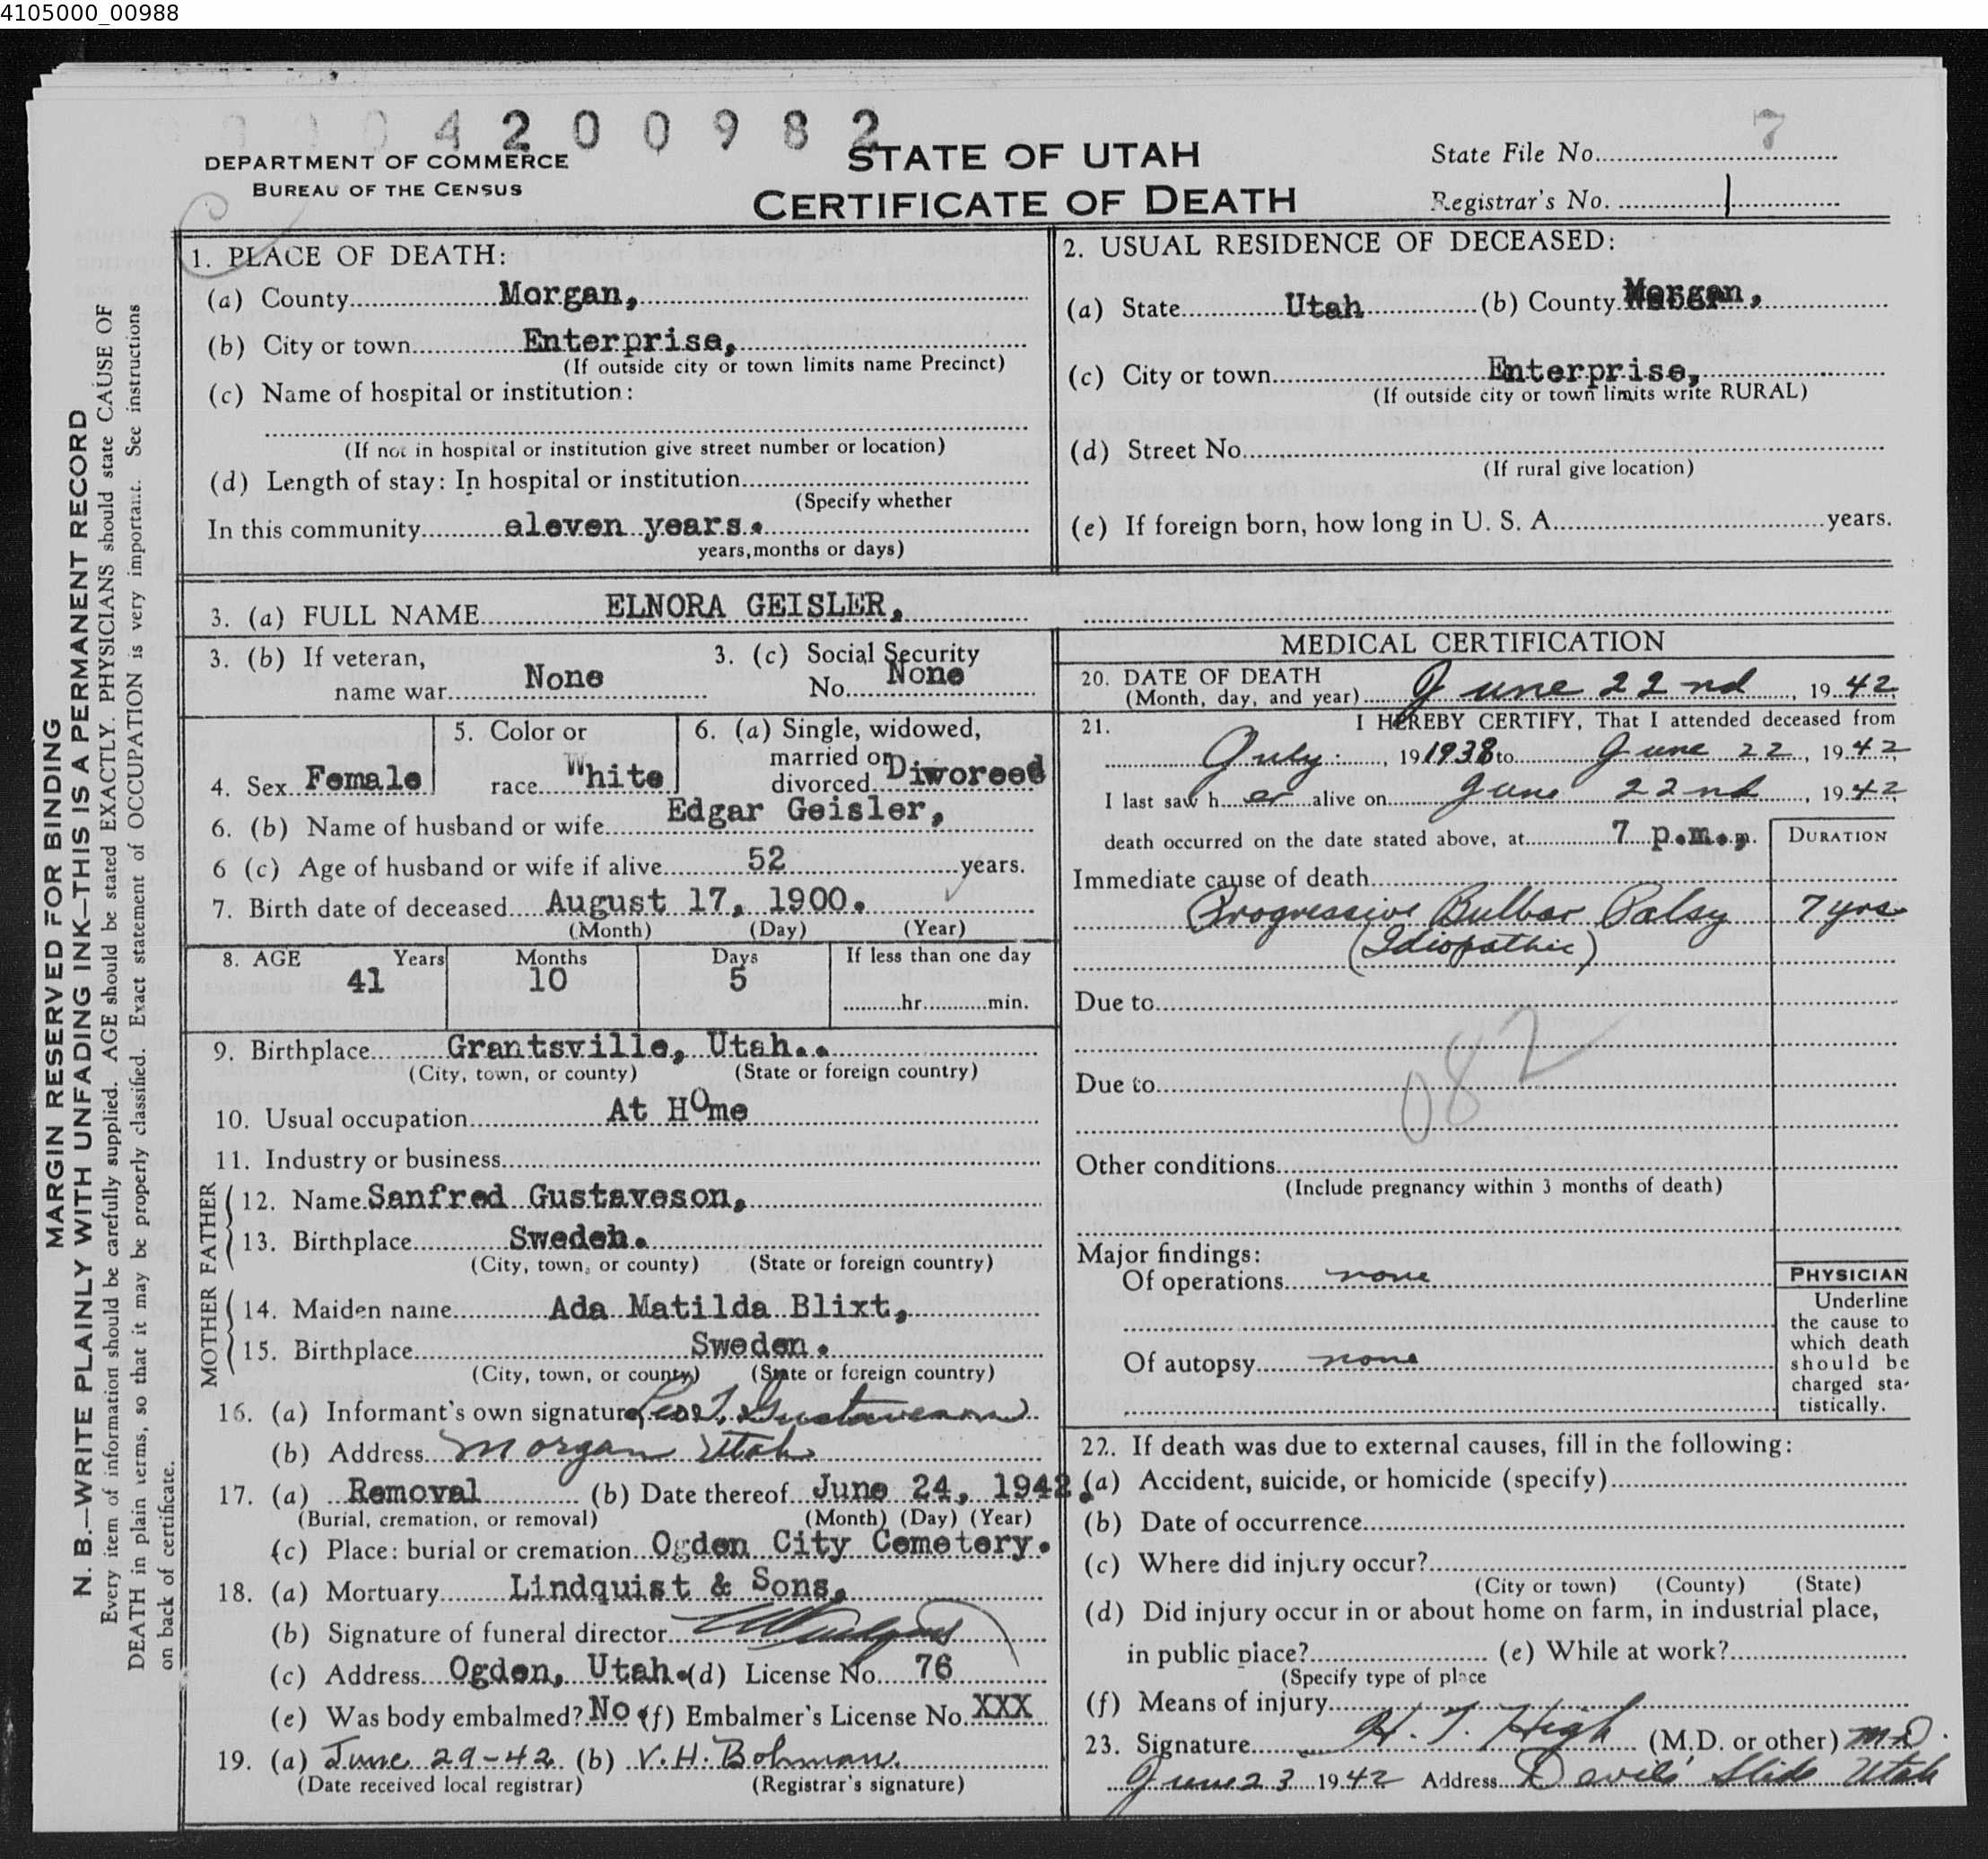 4105000_00988
4 2 0 0 9 8 2
7
DEPARTMENT OF COMMERCE
BUREAU OF THE CENSUS
STATE OF UTAH
CERTIFICATE OF DEATH
State File No.
Registrar's No. 1
MARGIN RESERVED FOR BINDING
N. B.—WRITE PLAINLY WITH UNFADING INK—THIS IS A PERMANENT RECORD
Every item of information should be carefully supplied. AGE should be stated EXACTLY. PHYSICIANS should state CAUSE OF
DEATH in plain terms, so that it may be properly classified. Exact statement of OCCUPATION is very important. See instructions
on back of certificate.
1. PLACE OF DEATH:
(a) County Morgan,
(b) City or town Enterprise,
(If outside city or town limits name Precinct)
(c) Name of hospital or institution:
(If not in hospital or institution give street number or location)
(d) Length of stay: In hospital or institution
(Specify whether
In this community eleven years.
years, months or days)
2. USUAL RESIDENCE OF DECEASED:
(a) State Utah (b) County Morgan,
(c) City or town Enterprise,
(If outside city or town limits write RURAL)
(d) Street No.
(If rural give location)
(e) If foreign born, how long in U. S. A. years.
3. (a) FULL NAME ELNORA GEISLER,
3. (b) If veteran, name war None
3. (c) Social Security No. None
4. Sex Female
5. Color or race White
6. (a) Single, widowed, married or divorced Divorced
6. (b) Name of husband or wife Edgar Geisler,
6 (c) Age of husband or wife if alive 52 years.
7. Birth date of deceased August 17, 1900.
(Month) (Day) (Year)
8. AGE Years Months Days If less than one day
41 10 5 hr. min.
9. Birthplace Grantsville, Utah..
(City, town, or county) (State or foreign country)
10. Usual occupation At HOme
11. Industry or business
FATHER
12. Name Sanfred Gustaveson,
13. Birthplace Sweden.
(City, town, or county) (State or foreign country)
MOTHER
14. Maiden name Ada Matilda Blixt,
15. Birthplace Sweden.
(City, town, or county) (State or foreign country)
16. (a) Informant's own signature Gustaveson
(b) Address Morgan Utah
17. (a) Removal (b) Date thereof June 24, 1942.
(Burial, cremation, or removal) (Month) (Day) (Year)
(c) Place: burial or cremation Ogden City Cemetery.
18. (a) Mortuary Lindquist & Sons,
(b) Signature of funeral director
(c) Address Ogden, Utah. (d) License No. 76
(e) Was body embalmed? No (f) Embalmer's License No. XXX
19. (a) June 29-42 (b) V. H. Bohman.
(Date received local registrar) (Registrar's signature)
MEDICAL CERTIFICATION
20. DATE OF DEATH
(Month, day, and year) June 22nd, 1942
21. I HEREBY CERTIFY, That I attended deceased from
July, 19 1938 to June 22, 1942
I last saw her alive on June 22nd, 1942
death occurred on the date stated above, at 7 p.m. m.
DURATION
Immediate cause of death
Progressive Bulbar Palsy 7 yrs
(Idiopathic)
Due to
082
Due to
Other conditions
(Include pregnancy within 3 months of death)
Major findings:
Of operations none
Of autopsy none
PHYSICIAN
Underline
the cause to
which death
should be
charged sta-
tistically.
22. If death was due to external causes, fill in the following:
(a) Accident, suicide, or homicide (specify)
(b) Date of occurrence
(c) Where did injury occur?
(City or town) (County) (State)
(d) Did injury occur in or about home on farm, in industrial place,
in public place? (e) While at work?
(Specify type of place
(f) Means of injury
23. Signature H. T. High (M.D. or other) M.D.
June 23 1942 Address Devils Slide Utah